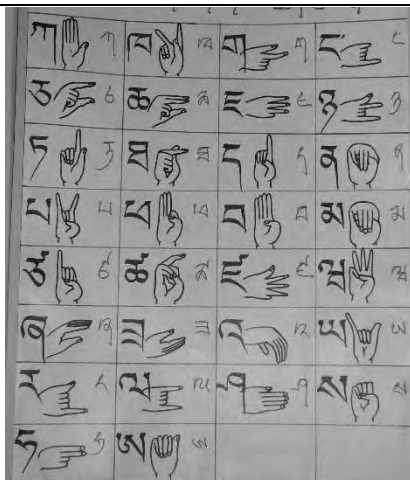 ཀ ཀ ཁ ཁ ག ག ང ང
ཅ ཅ ཆ ཆ ཇ ཇ ཉ ཉ
ཏ ཏ ཐ ཐ ད ད ན ན
པ པ ཕ ཕ བ བ མ མ
ཙ ཙ ཚ ཚ ཛ ཛ ཝ ཝ
ཞ ཞ ཟ ཟ འ འ ཡ ཡ
ར ར ལ ལ ཤ ཤ ས ས
ཧ ཧ ཨ ཨ